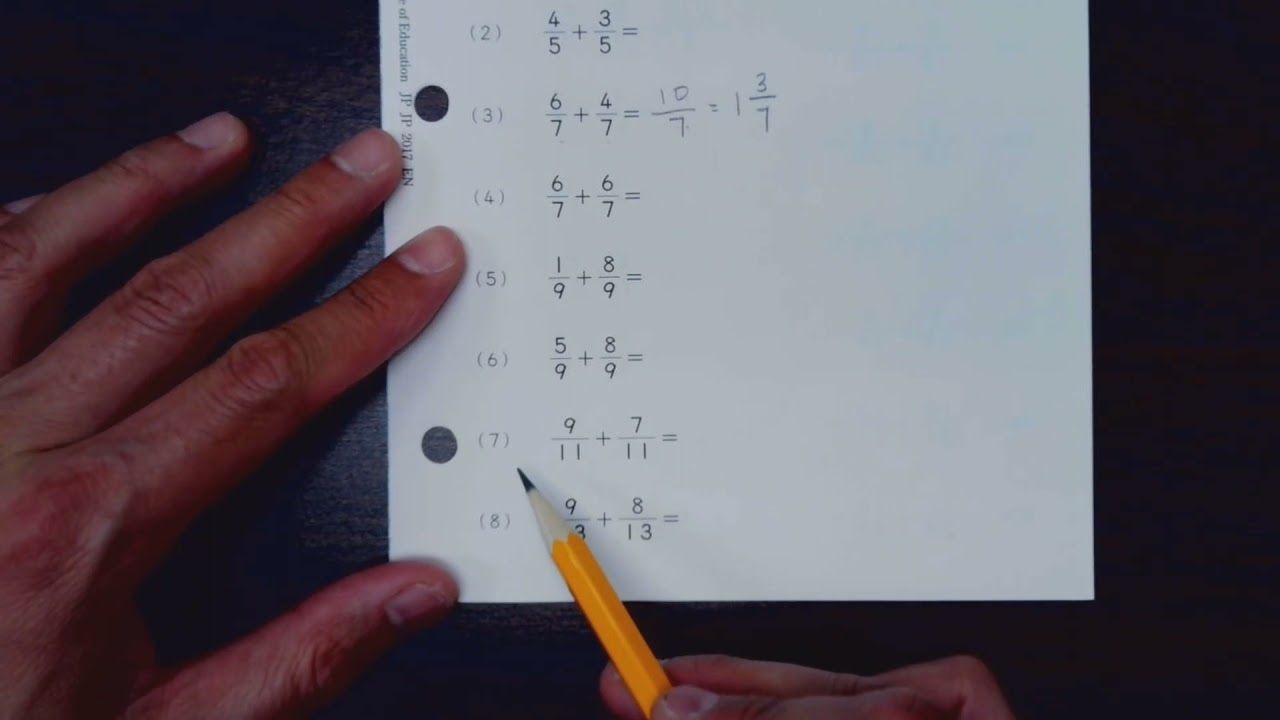 e of Education JP JP 2017 EN
(2) 4/5 + 3/5 =
(3) 6/7 + 4/7 = 10/7 = 1 3/7
(4) 6/7 + 6/7 =
(5) 1/9 + 8/9 =
(6) 5/9 + 8/9 =
(7) 9/11 + 7/11 =
(8) 9/3 + 8/13 =